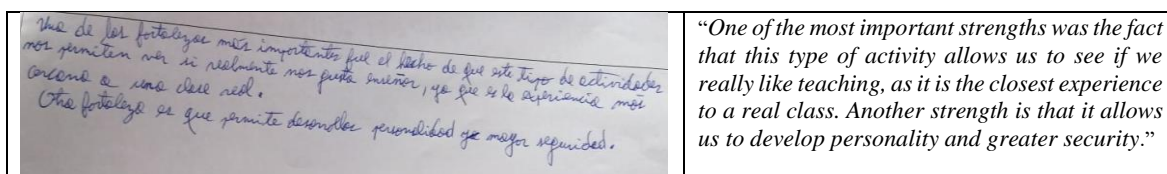 Una de las fortalezas más importantes fue el hecho de que este tipo de actividades
nos permiten ver si realmente nos gusta enseñar, ya que es la experiencia más
cercana a una clase real.
Otra fortaleza es que permite desarrollar personalidad y mayor seguridad.
“One of the most important strengths was the fact
that this type of activity allows us to see if we
really like teaching, as it is the closest experience
to a real class. Another strength is that it allows
us to develop personality and greater security.”